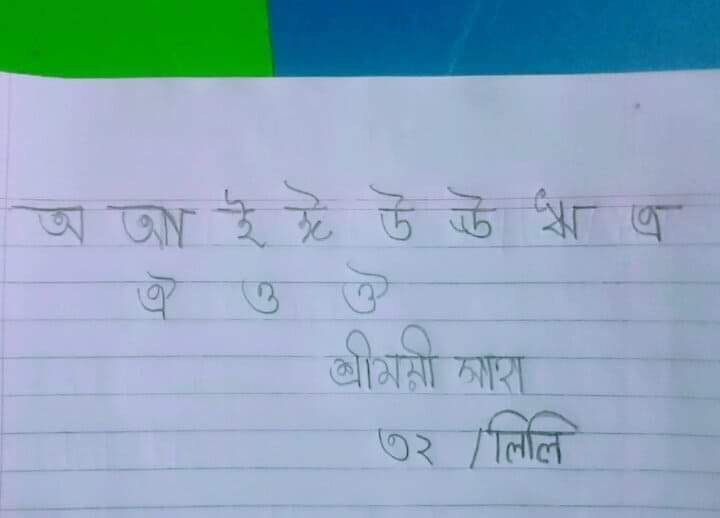 অ আ ই ঈ উ ঊ ঋ এ
ঐ ও ঔ
শ্রীময়ী সাহা
৩২ / লিলি